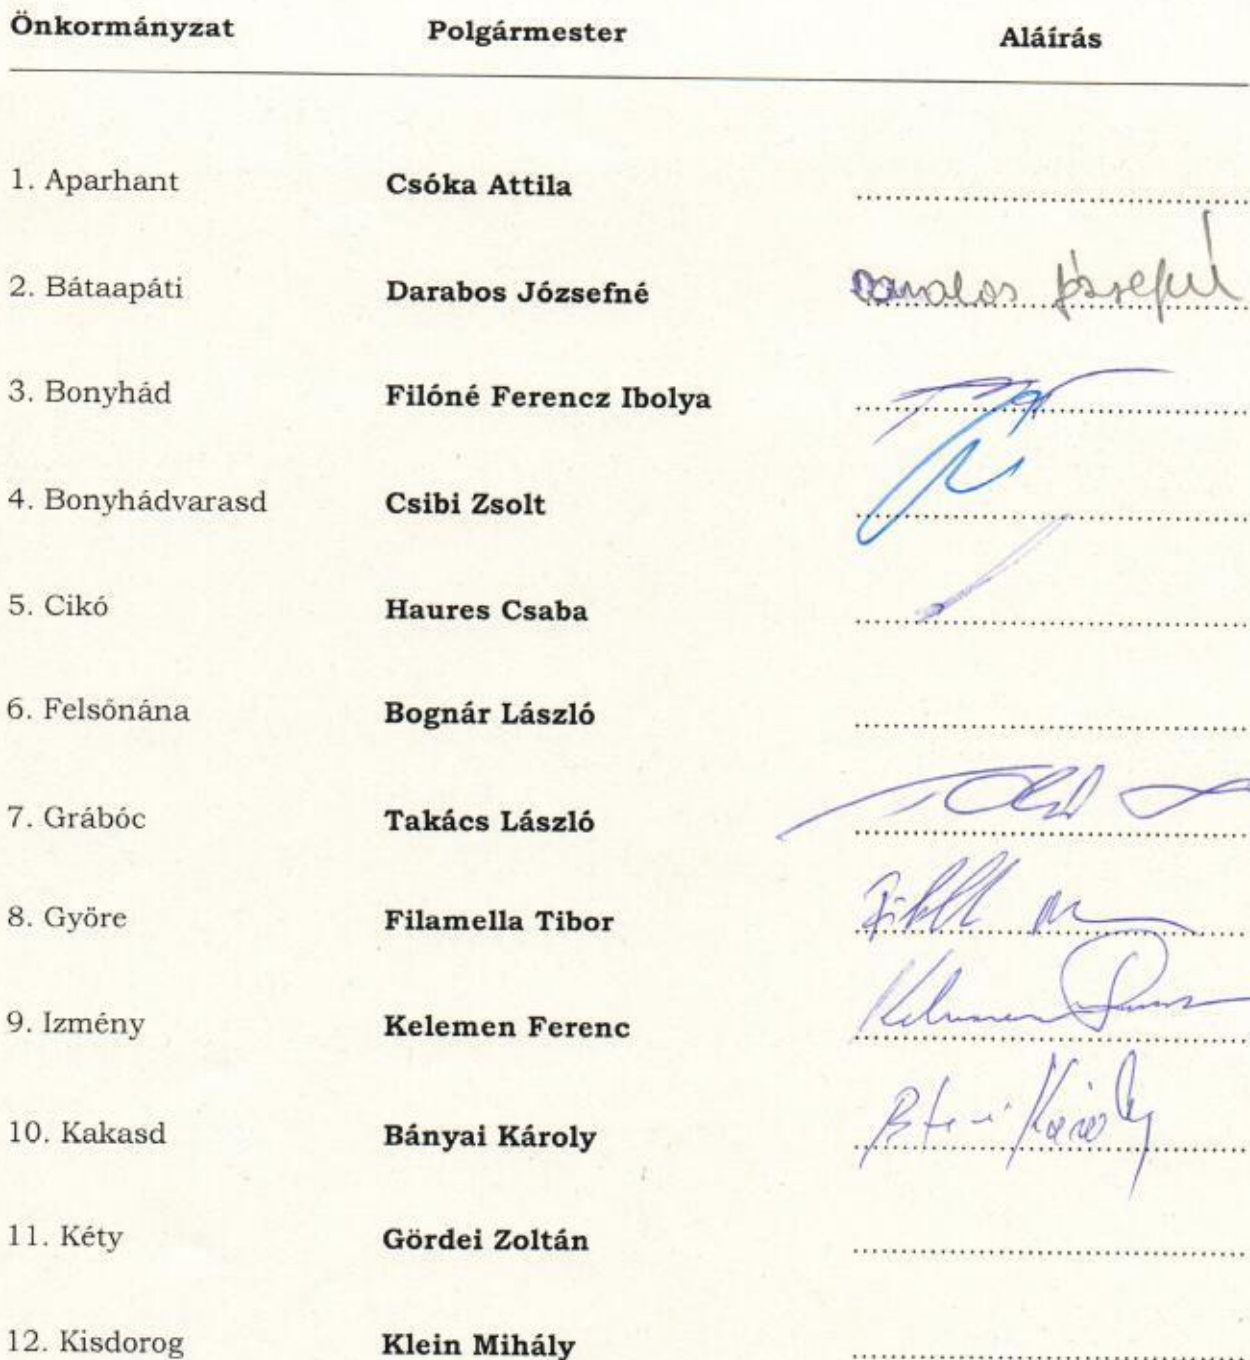 Önkormányzat Polgármester Aláírás
1. Aparhant Csóka Attila
2. Bátaapáti Darabos Józsefné Darabos Józsefné
3. Bonyhád Filóné Ferencz Ibolya
4. Bonyhádvarasd Csibi Zsolt
5. Cikó Haures Csaba
6. Felsőnána Bognár László
7. Grábóc Takács László
8. Györe Filamella Tibor
9. Izmény Kelemen Ferenc Kelemen Ferenc
10. Kakasd Bányai Károly Károly
11. Kéty Gördei Zoltán
12. Kisdorog Klein Mihály